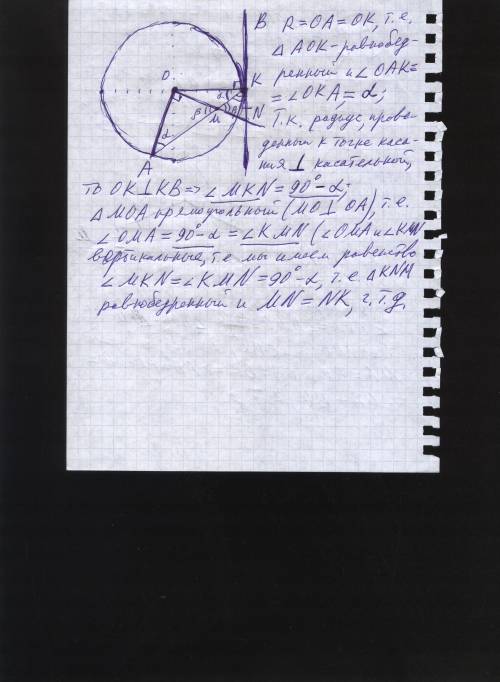 В R=OA=OK, т.е.
О
К
∆ AOK - равнобед-
ренный и ∠OAK=
α
β
M
N
= ∠OKA, = α;
Т.к. радиус, прове-
α
A
денный к точке каса-
ния ⊥ касательной,
то OK⊥KB => ∠MKN = 90° - α;
∆ MOA прямоугольный (MO⊥OA), т.е.
∠OMA = 90° - α = ∠KMN (∠OMA и ∠KMN
вертикальные, т.е мы имеем равенство
∠MKN = ∠KMN = 90° - α, т.е. ∆KNM
равнобедренный и MN = NK, ч.т.д.